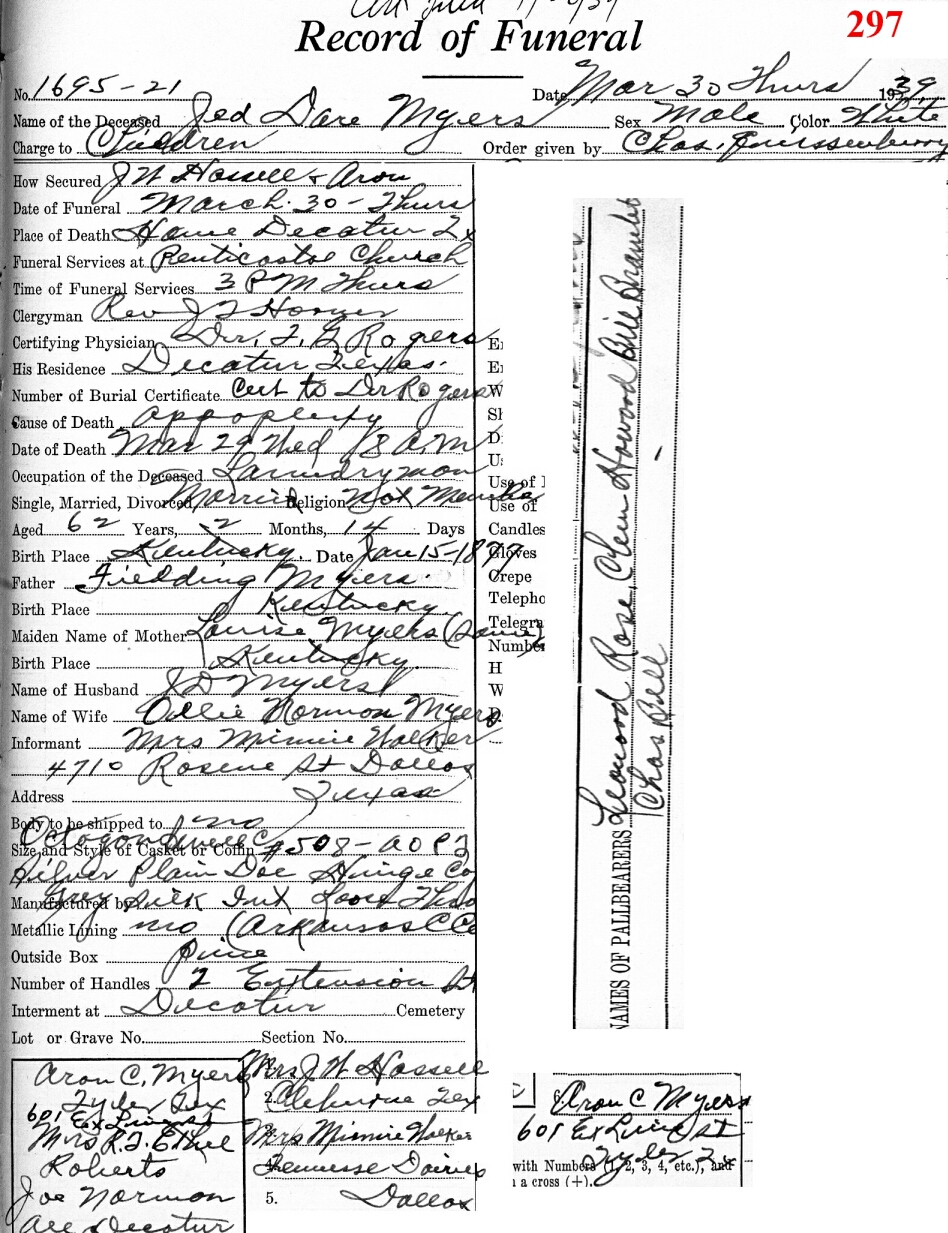 297
Record of Funeral
No. 1695-21 Date Mar 30 Thurs 1939
Name of the Deceased Jed Dare Myers Sex Male Color White
Charge to Children Order given by Chas.
How Secured J W Hassell & Aron
Date of Funeral March. 30 - Thurs
Place of Death Home Decatur Tx
Funeral Services at Penticostse Church
Time of Funeral Services 3 PM Thurs
Clergyman Rev J T
Certifying Physician Dr. T. G Rogers
His Residence Decatur Texas.
Number of Burial Certificate Cert to Dr Rogers
Cause of Death appoplexy
Date of Death Mar 29 Wed /8 a.m
Occupation of the Deceased Laundryman
Single, Married, Divorced Married Religion Not Member
Aged 62 Years, 2 Months, 14 Days
Birth Place Kentucky. Date Jan 15-1877
Father Fiedding Myers.
Birth Place Kentucky
Maiden Name of Mother Louise Myers (Same)
Birth Place Kentucky
Name of Husband J D Myers
Name of Wife Ollie Norman Myers
Informant Mrs Minnie Walker
4710 Rosene St Dallas
Address Texas
Body to be shipped to no
Octogon
Size and Style of Casket or Coffin #508-
Silver Plain Doe Hinge
Manufactured by Grey Silk Inx
Metallic Lining no (Arkansas C Co
Outside Box pine
Number of Handles 2 Extension
Interment at Decatur Cemetery
Lot or Grave No. Section No.
Aron C. Myers
Tyler Tex
601 Ex
Mrs R.J. Ethel
Roberts
Joe Norman
All Decatur
Mrs J W Hassell
2. Cleburne Tex
Mrs Minnie Walker
Tennesse Dairies
5. Dallas
Use of
Use of
Candles
Gloves
Crepe
Telepho
Telegra
Number
H
W
NAMES OF PALLBEARERS Leonard Rose, Clem Howard Bill Bramlet
Chas Bell
Aron C Myers
601 Ex St
Tyler Tx
with Numbers (1, 2, 3, 4, etc.), and
a cross (+).